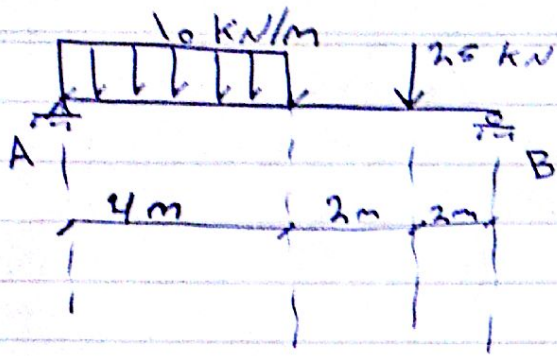 10 kN/m
25 kN
A
B
4 m
2m
2m